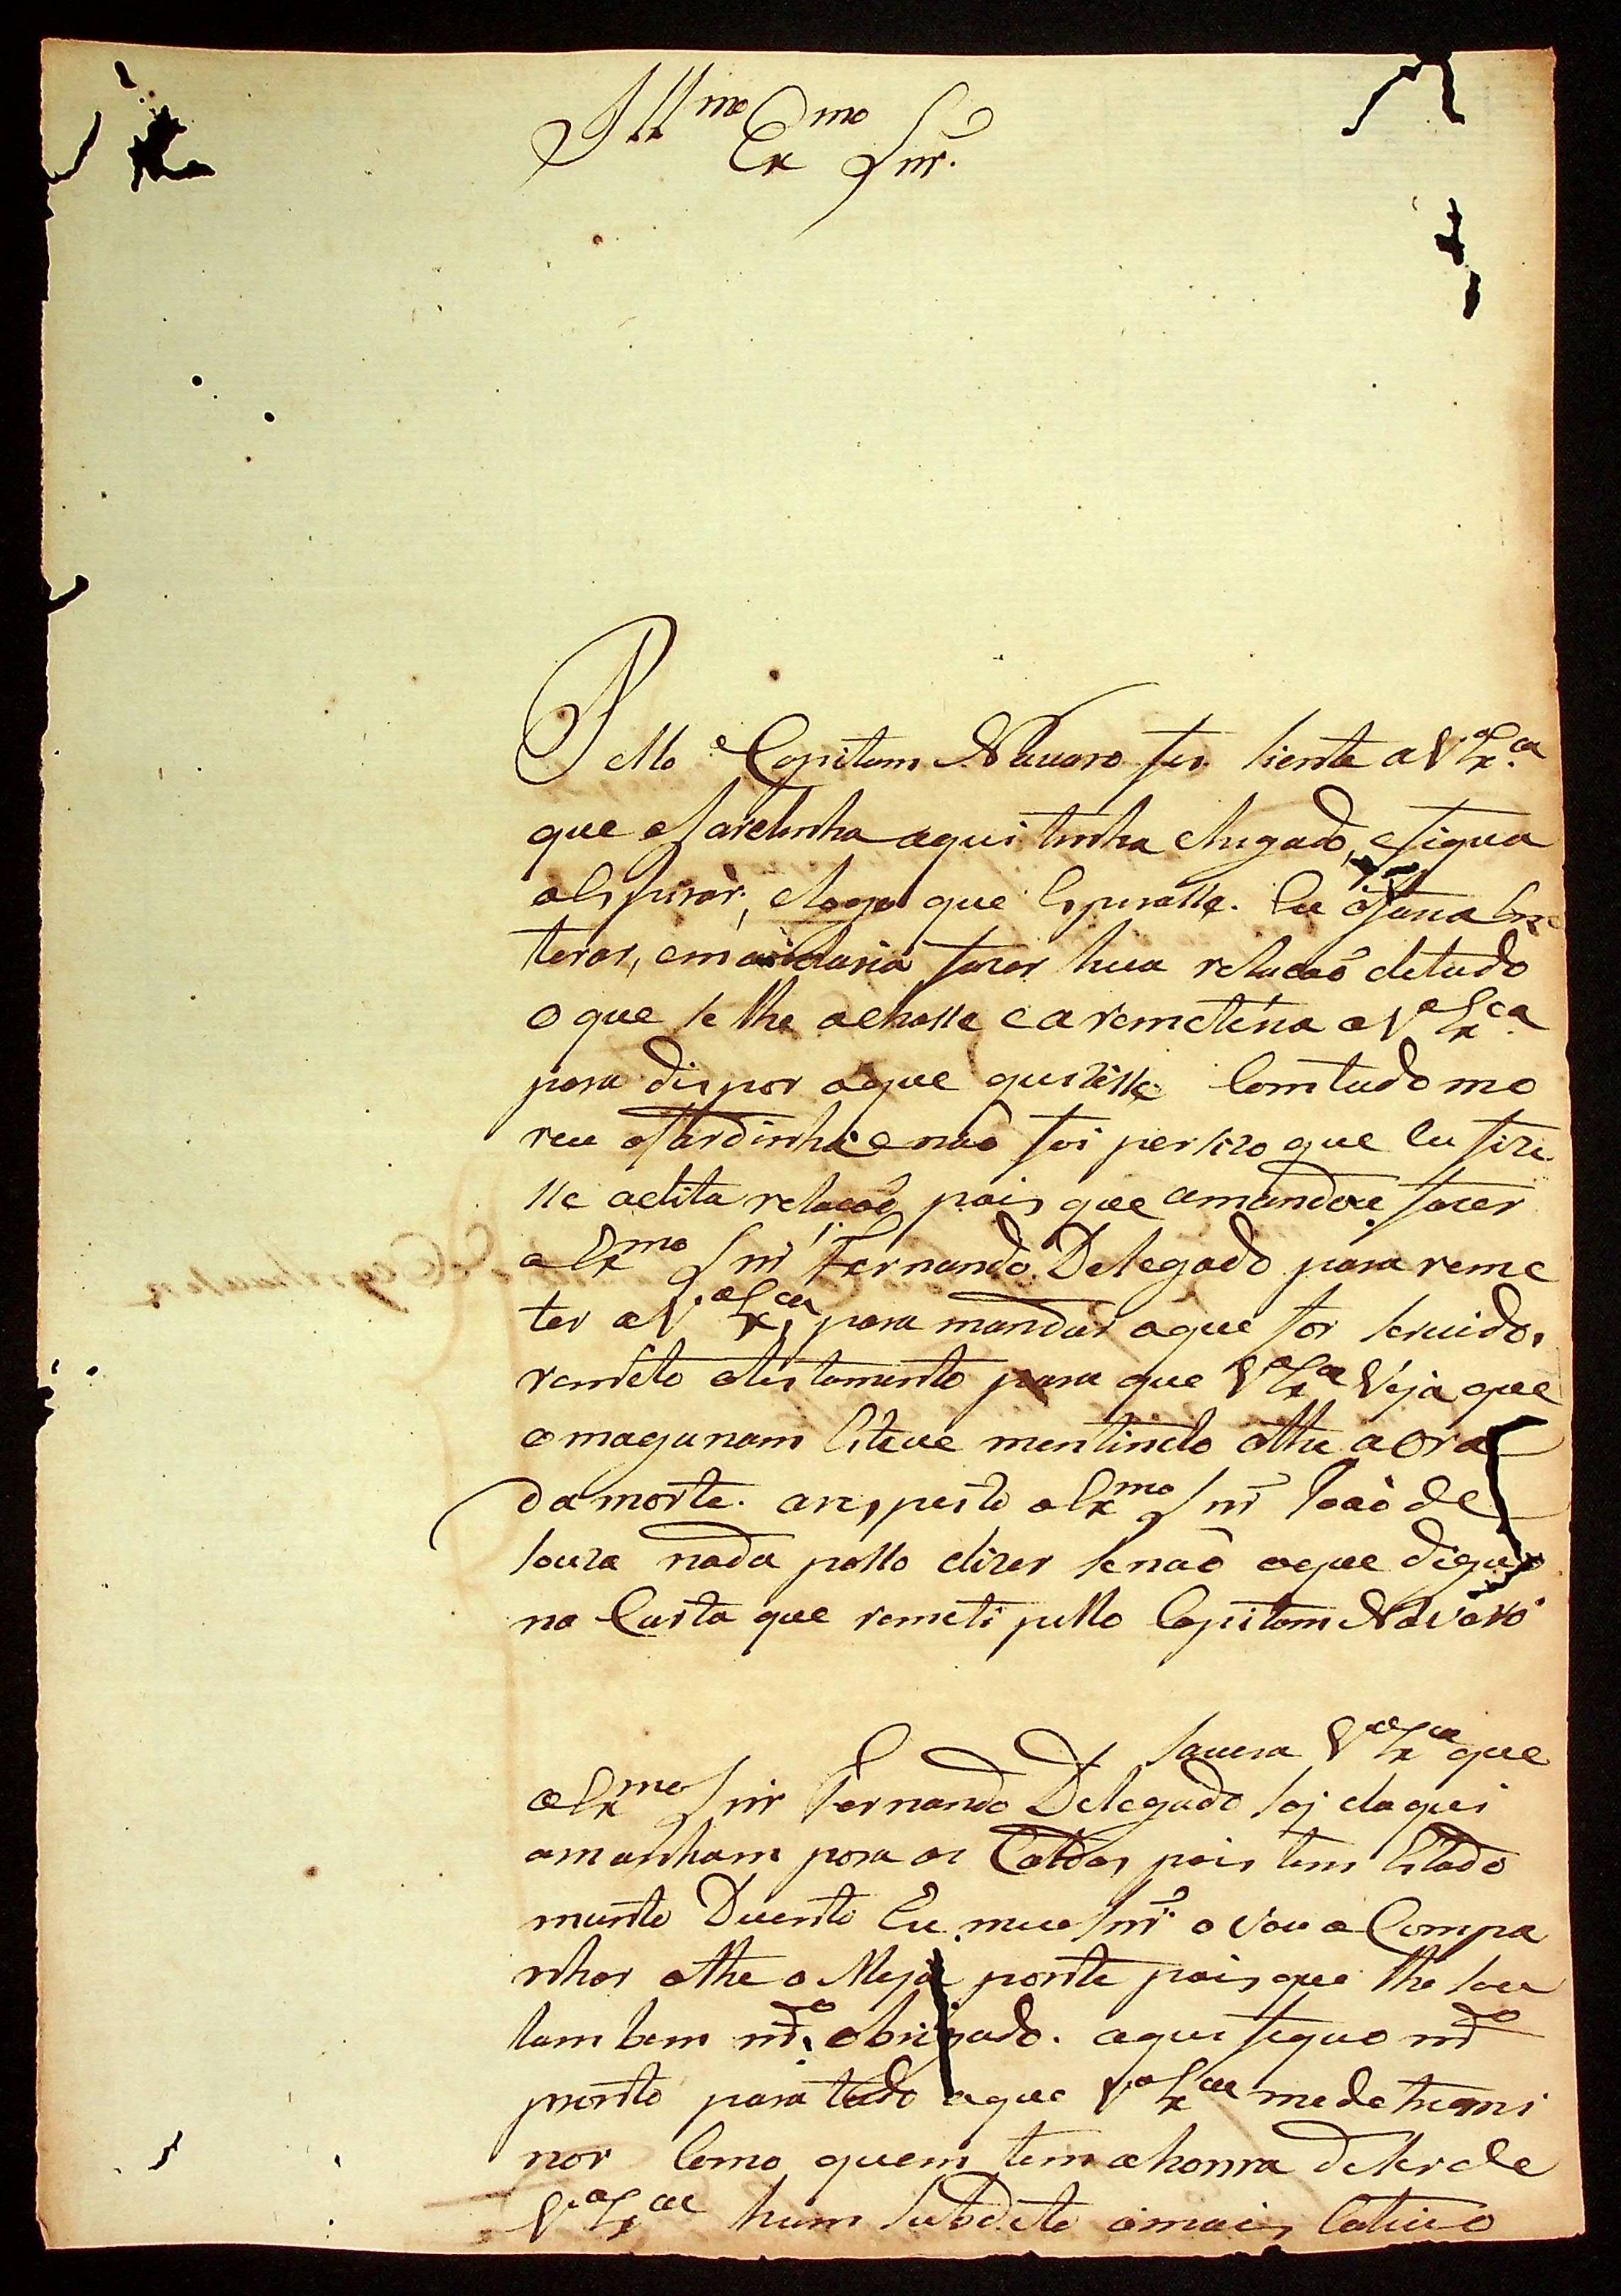 Ill.mo Ex.mo Snr.
Pello Capitam Navaro fis siente a V.a Ex.ca
que o Sardinha aqui tinha chegado, e ficava
a espirár, e logo que espirasse. eu o faria en
terar, e mandaria fazer hua relacaõ de tudo
o que se lhe achasse e a remeteria a V.a Ex.ca
para dispor o que quizesse Comtudo mo
reu o Sardinha e naõ foi persizo que eu fize
sse a dita relacaõ pois que a mandou fazer
o Ex.mo Snr Fernando Delegado para reme
ter a V.a Ex.ca, para mandar o que for servido,
remeto o testamento para que V.a Ex.ca Veja que
o maganam esteve mentindo athe a ora
da morte. a respeito o Ex.mo Snr Joaõ de
souza nada posso dizer senaõ o que digo
na Carta que remeti pello Capitam Navaro
savera V.a Ex.ca que
o Ex.mo Snr Fernando Delegado saj daqui
amanham para as Caldas pois tem estado
munto Duente Eu meu Snr o vou a Compa
nhar athe a Meja ponte pois que lhe sou
tam bem m.to obrigado. aqui fiquo m.to
pronto para tudo o que V.a Ex.ca me detremi
nar Como quem tem a honra de ser de
V.a Ex.ca hum Subdito o mais Cativo